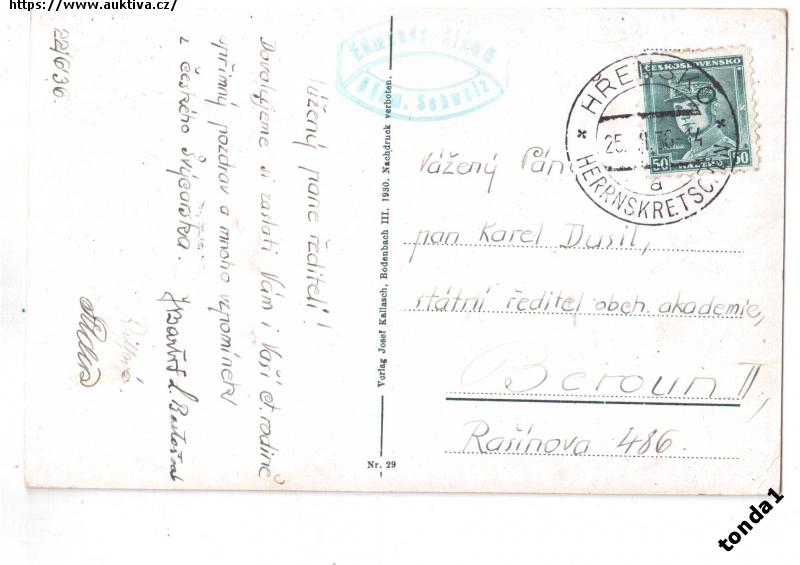 https://www.auktiva.cz/
22/6 36.
Vážený pane řediteli!
Dovolujeme si zaslati Vám i Vaší ct. rodině
upřímný pozdrav a mnoho vzpomínek
z českého Švýcarska.
Böhm. Schweiz
Verlag Josef Kallasch, Bodenbach III. 1930. Nachdruck verboten.
Nr. 29
ČESKOSLOVENSKO
50 50
HŘENSKO
25.
a
HERRNSKRETSCHEN
Vážený Pán
pan Karel Dusil,
státní ředitel obch. akademie,
Beroun II,
Rašínova 486.
tonda1